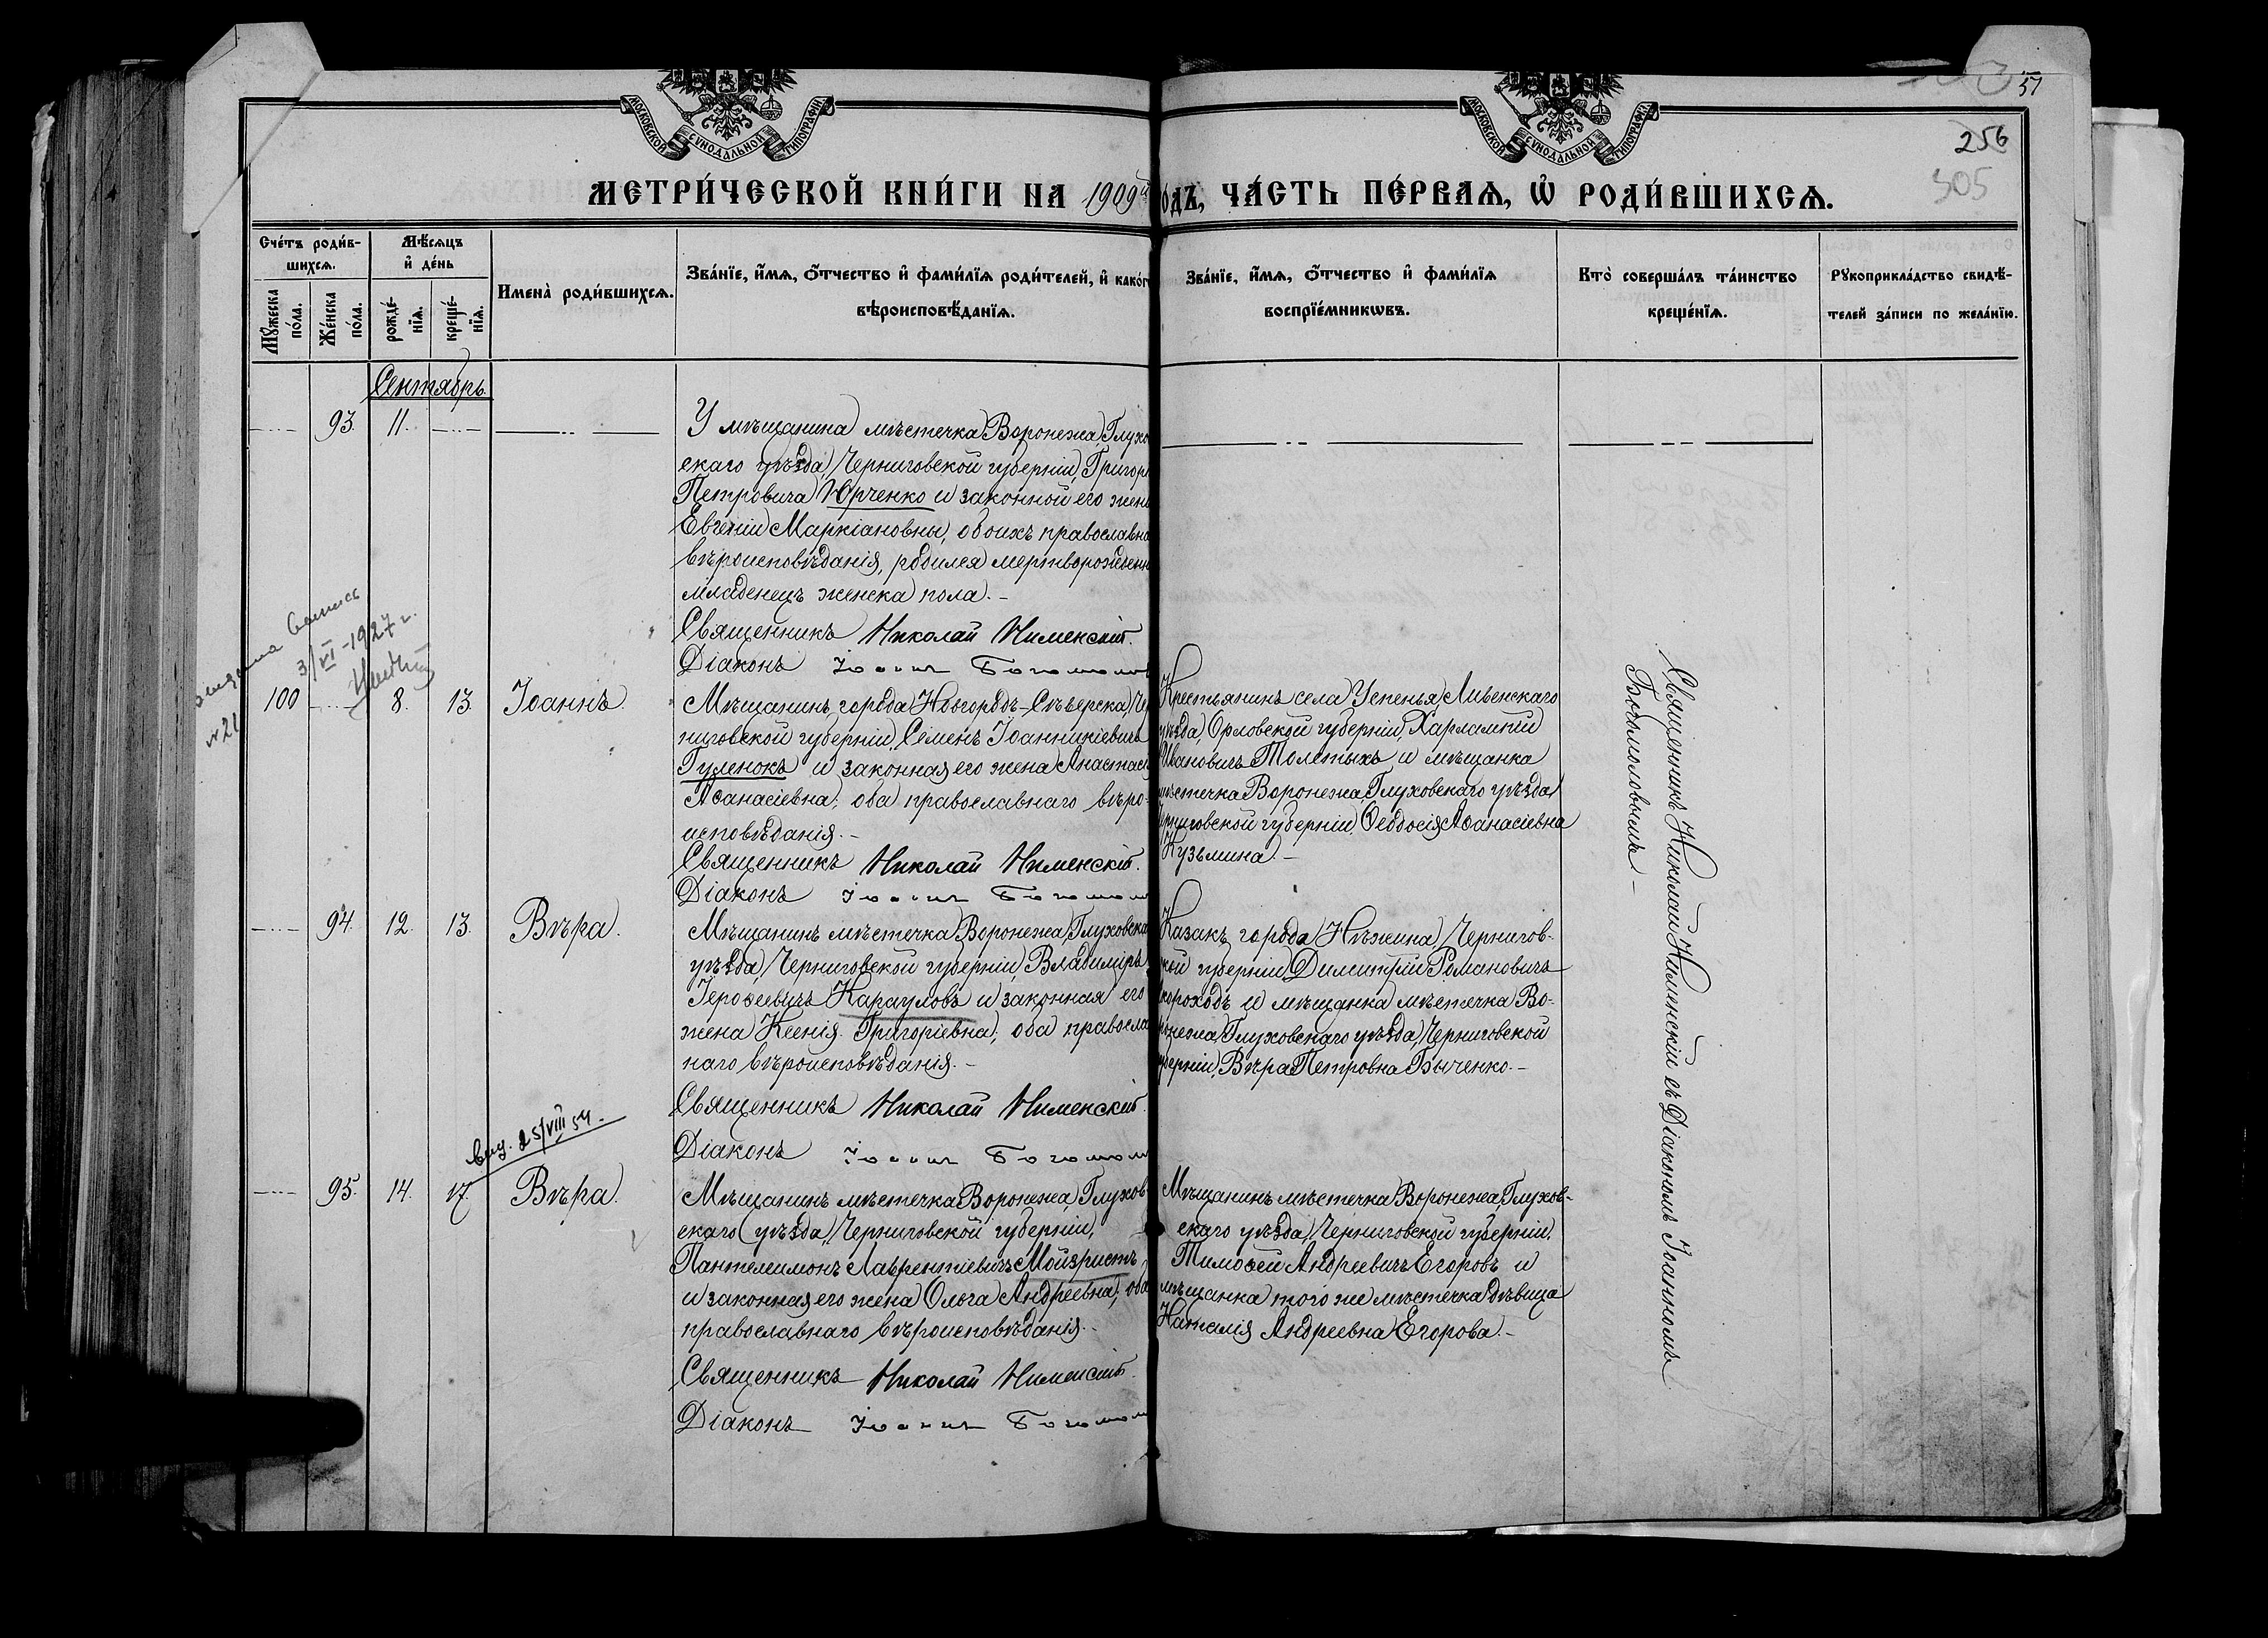 МОСКОВСКОЙ СУНОДАЛЬНОЙ ТИПОГРАФІИ
МОСКОВСКОЙ СУНОДАЛЬНОЙ ТИПОГРАФІИ
51
256
305
МЕТРИ́ЧЕСКОЙ КНИ́ГИ НА 1909й
о́дъ, ЧА́СТЬ ПЕ́РВАѦ, Ѡ҆ РОДИ́ВШИХСѦ.
Сче́тъ роди́в-
шихсѧ.
Мꙋ́жеска
по́ла.
Же́нска
по́ла.
Мѣ́сѧцъ
и҆ де́нь
рожде́-
нїѧ.
креще́-
нїѧ.
Имена̀ роди́вшихсѧ.
Зва́нїе, и҆́мѧ, ѻ҆́тчество и҆ фами́лїѧ роди́телей, и҆ како́г
вѣроисповѣ́данїѧ.
Зва́нїе, и҆́мѧ, ѻ҆́тчество и҆ фами́лїѧ
воспрїе́мникѡвъ.
Кто̀ соверша́лъ та́инство
креще́нїѧ.
Рꙋкоприкла́дство свидѣ́-
телей за́писи по жела́нїю.
Сентябрь
93. 11.
У мѣщанина мѣстечка Воронежа, Глухо
скаго уѣзда, Черниговской губерніи, Григор
Петровича Юрченко и законной его жен
Евгеніи Маркіановны, обоихъ православна
вѣроисповѣданія, родился мертворожденн
младенецъ женска пола. –
Священникъ Николай Нименскій.
Діаконъ Іоаннъ Богомолов
3/VI-1927 г.
№21
100 8. 13. Іоаннъ
Мѣщанинъ города Новгородъ-Сѣверска, Чер
ниговской губерніи, Семенъ Іоанникіевичъ
Гуленокъ и законная его жена Анастасі
Аѳанасіевна; оба православнаго вѣро-
исповѣданія. –
Священникъ Николай Нименскій.
Діаконъ Іоаннъ Богомол
Крестьянинъ села Успенья, Ливенскаго
уѣзда, Орловской губерніи, Харлампій
Ивановичъ Толстыхъ и мѣщанка
мѣстечка Воронежа, Глуховскаго уѣзда,
рниговской губерніи, Ѳеодосія Аѳанасіевна
Кузьмина. –
94. 12. 13. Вѣра.
Мѣщанинъ мѣстечка Воронежа, Глуховска
уѣзда, Черниговской губерніи, Владиміръ
Іероѳеевичъ Карауловъ и законная его
жена Ксенія Григоріевна; оба правосла
наго вѣроисповѣданія. –
Священникъ Николай Нименскій.
Діаконъ Іоаннъ Богомол
Казакъ города Нѣжина, Чернигов-
кой губерніи, Димитрій Романовичъ
короходъ и мѣщанка мѣстечка Во-
ронежа, Глуховскаго уѣзда, Черниговской
уберніи, Вѣра Петровна Быченко. –
выд. 25/VIII 54.
95. 14. 17. Вѣра.
Мѣщанинъ мѣстечка Воронежа, Глухов
скаго уѣзда, Черниговской губерніи,
Пантелеимонъ Лаврентіевичъ Мойзристъ
и законная его жена Ольга Андреевна; оба
православнаго вѣроисповѣданія. –
Священникъ Николай Нименскій.
Діаконъ Іоаннъ Богомол
Мѣщанинъ мѣстечка Воронежа, Глухов-
скаго уѣзда, Черниговской губерніи,
Тимоѳей Андреевичъ Егоровъ и
мѣщанка того же мѣстечка дѣвица
Наталія Андреевна Егорова. –
Священникъ Николай Нименскій съ Діакономъ Іоанномъ
Богомоловымъ –